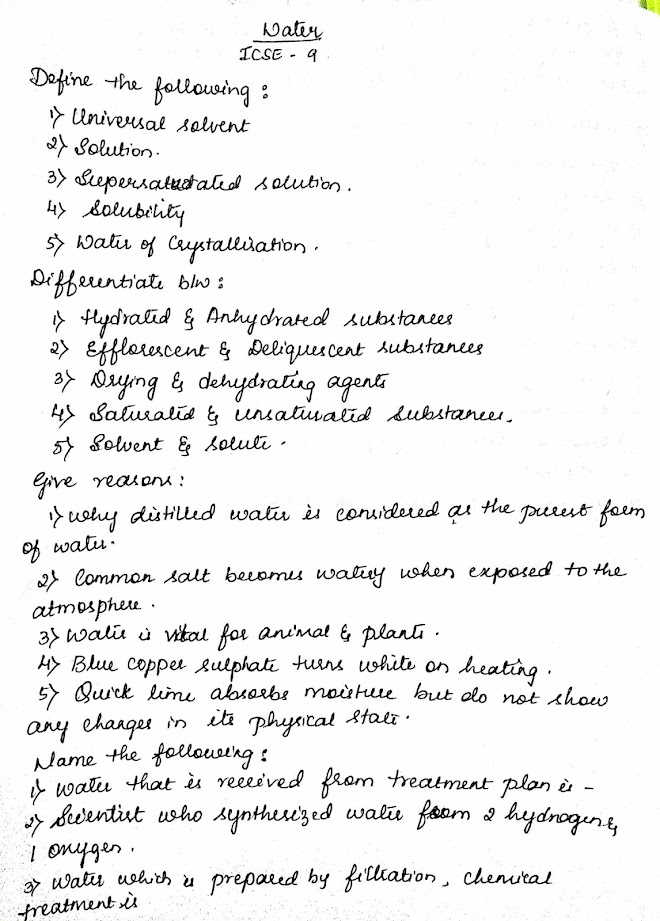 Water
ICSE - 9
Define the following :
1) Universal solvent
2) Solution.
3) Supersaturated solution.
4) Solubility
5) Water of Crystallisation.
Differentiate b/w :
1) Hydrated & Anhydrated substances
2) Efflorescent & Deliquescent substances
3) Drying & dehydrating agents
4) Saturated & unsaturated substances.
5) Solvent & solute.
Give reasons :
1) why distilled water is considered as the purest form
of water.
2) Common salt becomes watery when exposed to the
atmosphere.
3) Water is vital for animal & plants.
4) Blue copper sulphate turns white on heating.
5) Quick lime absorbs moisture but do not show
any changes in its physical state.
Name the following :
1) water that is received from treatment plan is -
2) Scientist who synthesized water from 2 hydrogen &
1 oxygen.
3) Water which is prepared by filtration, chemical
treatment is